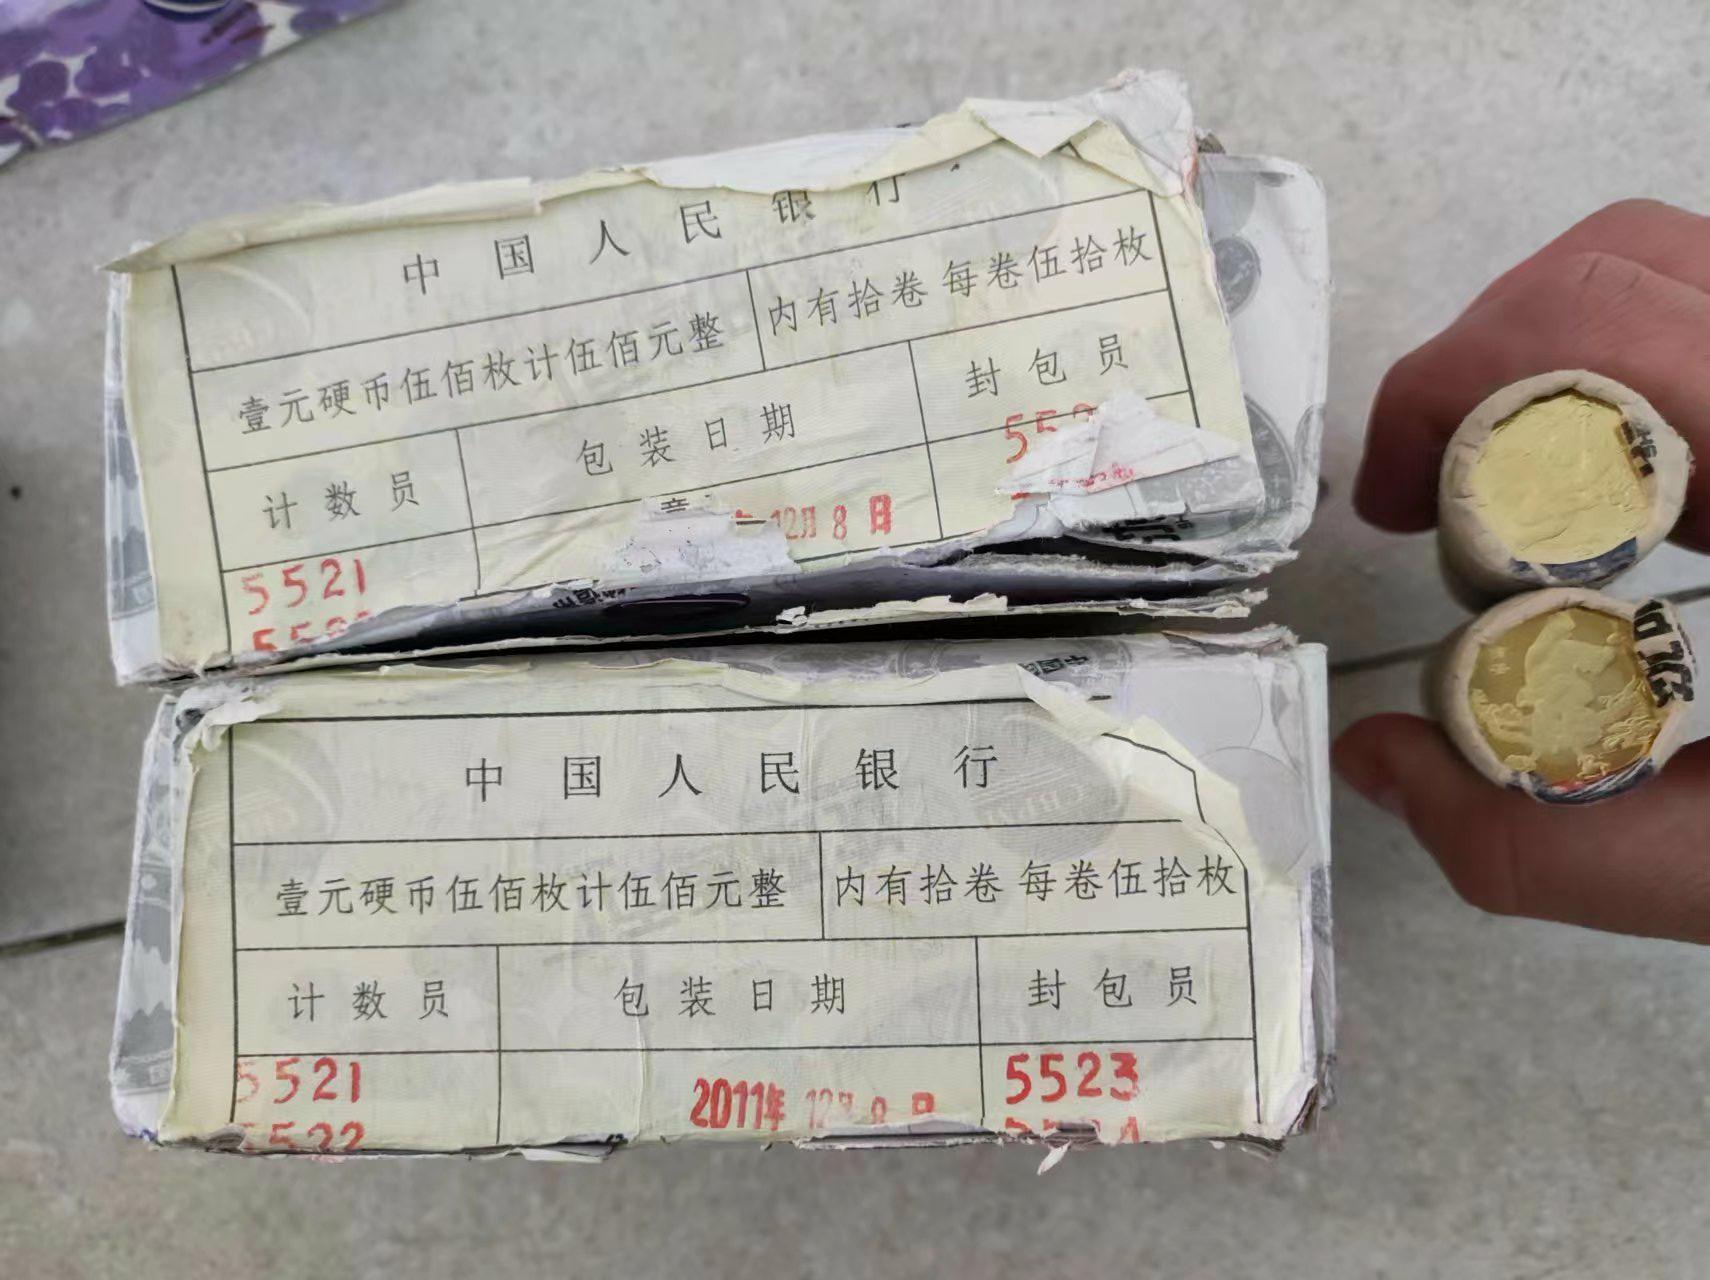 中国人民银行
壹元硬币伍佰枚计伍佰元整 内有拾卷 每卷伍拾枚
计数员 包装日期 封包员
5521 12月8日 552
中国人民银行
壹元硬币伍佰枚计伍佰元整 内有拾卷 每卷伍拾枚
计数员 包装日期 封包员
5521 2011年 12月 日 5523
5522